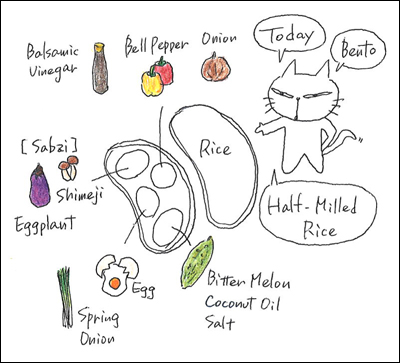 Balsamic
Vinegar
Bell Pepper
Onion
Today
Bento
[Sabzi]
Shimeji
Eggplant
Rice
Half-Milled
Rice
Egg
Spring
Onion
Bitter Melon
Coconut Oil
Salt